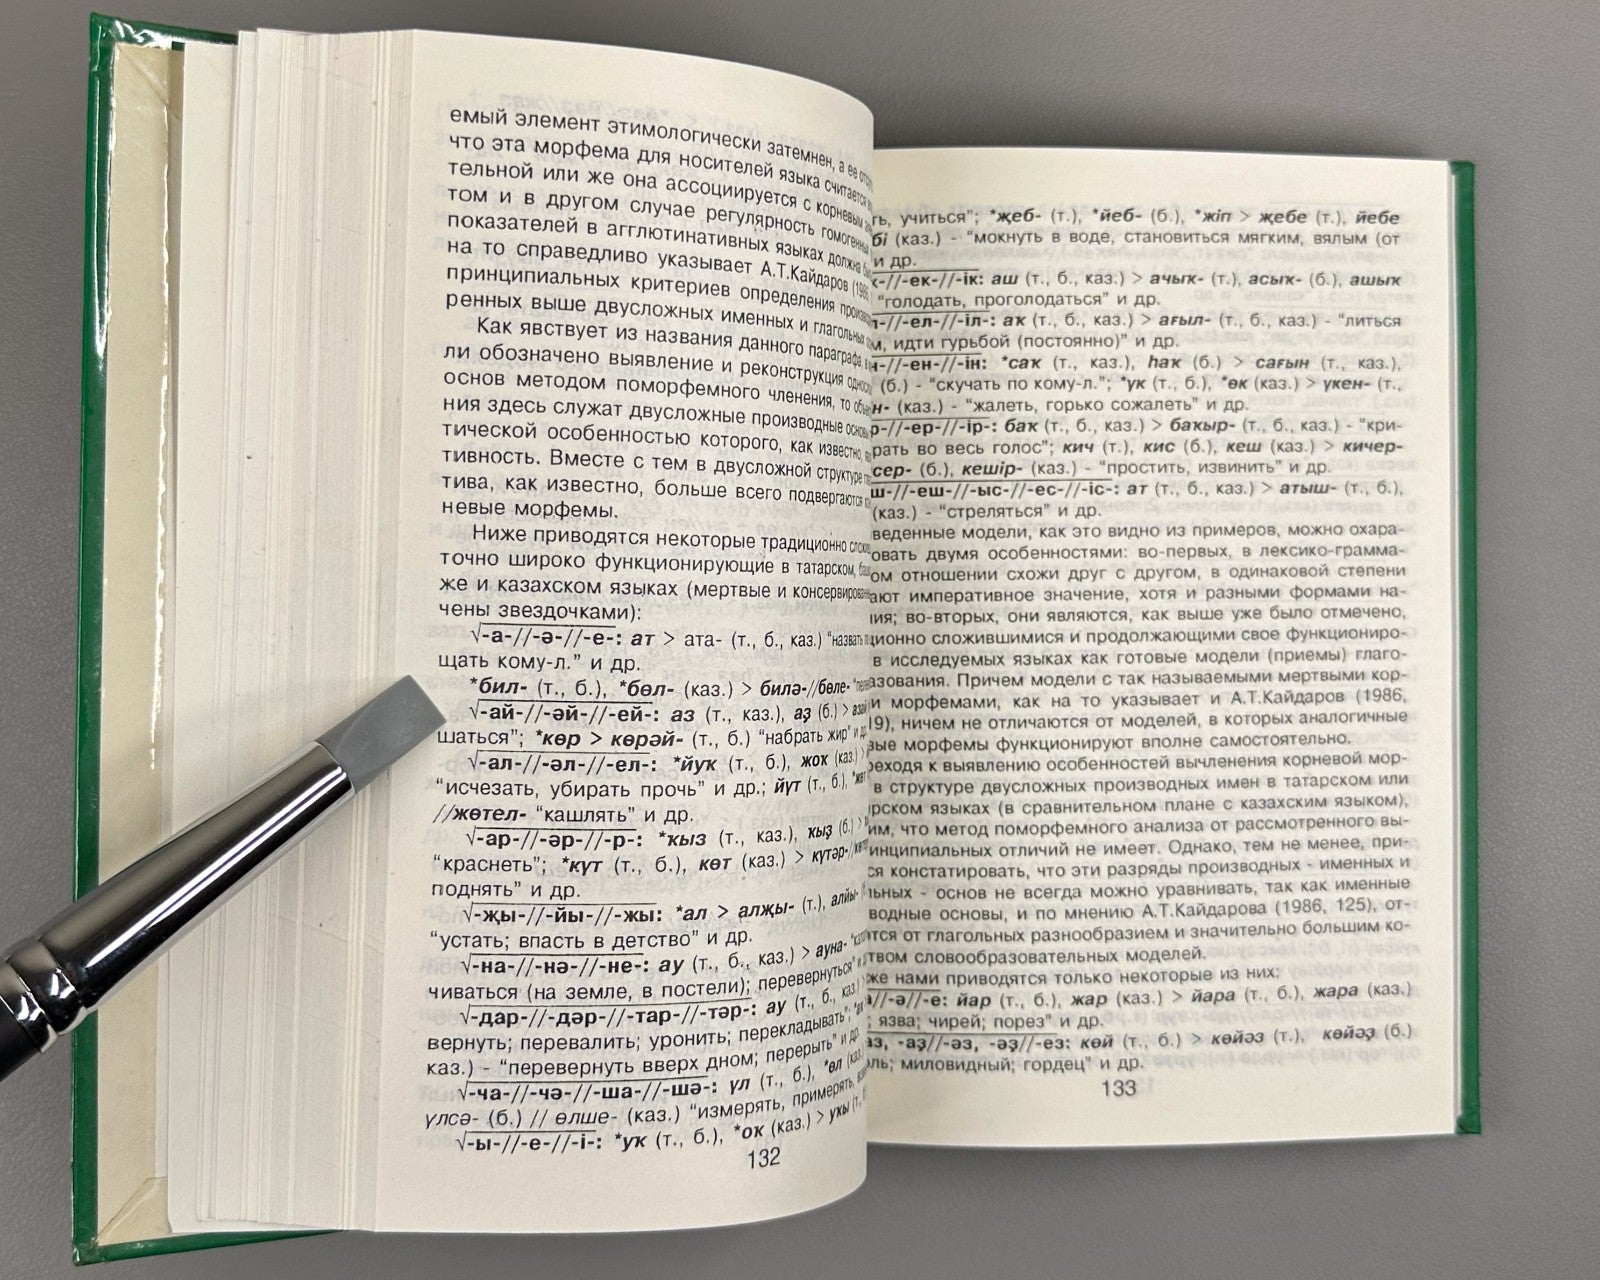 емый элемент этимологически затемнен, а ее
что эта морфема для носителей языка считается
тельной или же она ассоциируется с корневым
том и в другом случае регулярность гомогенных
показателей в агглютинативных языках должна
на то справедливо указывает А.Т.Кайдаров (1986,
принципиальных критериев определения
ренных выше двусложных именных и глагольных
Как явствует из названия данного параграфа,
ли обозначено выявление и реконструкция
основ методом поморфемного членения, то
ния здесь служат двусложные производные основы
тической особенностью которого, как известно,
тивность. Вместе с тем в двусложной структуре
тива, как известно, больше всего подвергаются
невые морфемы.
Ниже приводятся некоторые традиционно
точно широко функционирующие в татарском,
же и казахском языках (мертвые и
чены звездочками):
√-а-//-ә-//-е-: ат > ата- (т., б., каз.) "назвать
щать кому-л." и др.
*бил- (т., б.), *бөл- (каз.) > билә-//бөле-
√-ай-//-әй-//-ей-: аз (т., каз.), аҙ (б.) >
шаться"; *көр > көрәй- (т., б.) "набрать жир" и
√-ал-//-әл-//-ел-: *йуҡ (т., б.), жоҡ (каз.) >
"исчезать, убирать прочь" и др.; йүт (т., б.),
//жөтел- "кашлять" и др.
√-ар-//-әр-//-р-: *ҡыз (т., каз.), ҡыҙ (б.) >
"краснеть"; *күт (т., б.), көт (каз.) > күтәр-//
поднять" и др.
√-җы-//-йы-//-жы: *ал > алҗы- (т.), алйы-
"устать; впасть в детство" и др.
√-на-//-нә-//-не-: ау (т., б., каз.) > ауна-
чиваться (на земле, в постели); перевернуться" и
√-дар-//-дәр-//-тар-//-тәр-: ау (т., б., каз.)
вернуть; перевалить; уронить; перекладывать";
каз.) - "перевернуть вверх дном; перерыть" и др.
√-ча-//-чә-//-ша-//-шә-: үл (т., б.), *өл (каз.)
үлсә- (б.) // өлше- (каз.) "измерять, примерять,
√-ы-//-е-//-і-: *уҡ (т., б.), *оҡ (каз.) > уҡы (т.,
132
ть, учиться"; *җеб- (т.), *йеб- (б.), *жіп > җебе (т.), йебе
бі (каз.) - "мокнуть в воде, становиться мягким, вялым (от
и др.
-//-ек-//-ік: аш (т., б., каз.) > ачыҡ- (т.), асыҡ- (б.), ашыҡ
"голодать, проголодаться" и др.
-//-ел-//-іл-: аҡ (т., б., каз.) > ағыл- (т., б., каз.) - "литься
м, идти гурьбой (постоянно)" и др.
-//-ен-//-ін: *саҡ (т., каз.), һаҡ (б.) > сағын (т., каз.),
(б.) - "скучать по кому-л."; *үк (т., б.), *өк (каз.) > үкен- (т.,
н- (каз.) - "жалеть, горько сожалеть" и др.
р-//-ер-//-ір-: баҡ (т., б., каз.) > баҡыр- (т., б., каз.) - "кри-
рать во весь голос"; кич (т.), кис (б.), кеш (каз.) > кичер-
сер- (б.), кешір- (каз.) - "простить, извинить" и др.
ш-//-еш-//-ыс-//-ес-//-іс-: ат (т., б., каз.) > атыш- (т., б.),
(каз.) - "стреляться" и др.
веденные модели, как это видно из примеров, можно охара-
овать двумя особенностями: во-первых, в лексико-грамма-
ом отношении схожи друг с другом, в одинаковой степени
ают императивное значение, хотя и разными формами на-
ия; во-вторых, они являются, как выше уже было отмечено,
ционно сложившимися и продолжающими свое функциониро-
в исследуемых языках как готовые модели (приемы) глаго-
азования. Причем модели с так называемыми мертвыми кор-
и морфемами, как на то указывает и А.Т.Кайдаров (1986,
19), ничем не отличаются от моделей, в которых аналогичные
вые морфемы функционируют вполне самостоятельно.
реходя к выявлению особенностей вычленения корневой мор-
в структуре двусложных производных имен в татарском или
рском языках (в сравнительном плане с казахским языком),
им, что метод поморфемного анализа от рассмотренного вы-
инципиальных отличий не имеет. Однако, тем не менее, при-
ся констатировать, что эти разряды производных - именных и
льных - основ не всегда можно уравнивать, так как именные
водные основы, и по мнению А.Т.Кайдарова (1986, 125), от-
тся от глагольных разнообразием и значительно большим ко-
твом словообразовательных моделей.
же нами приводятся только некоторые из них:
//-ә//-е: йар (т., б.), жар (каз.) > йара (т., б.), жара (каз.)
; язва; чирей; порез" и др.
аз, -аҙ//-әз, -әҙ//-ез: көй (т., б.) > көйәз (т.), көйәҙ (б.)
оль; миловидный; гордец" и др.
133